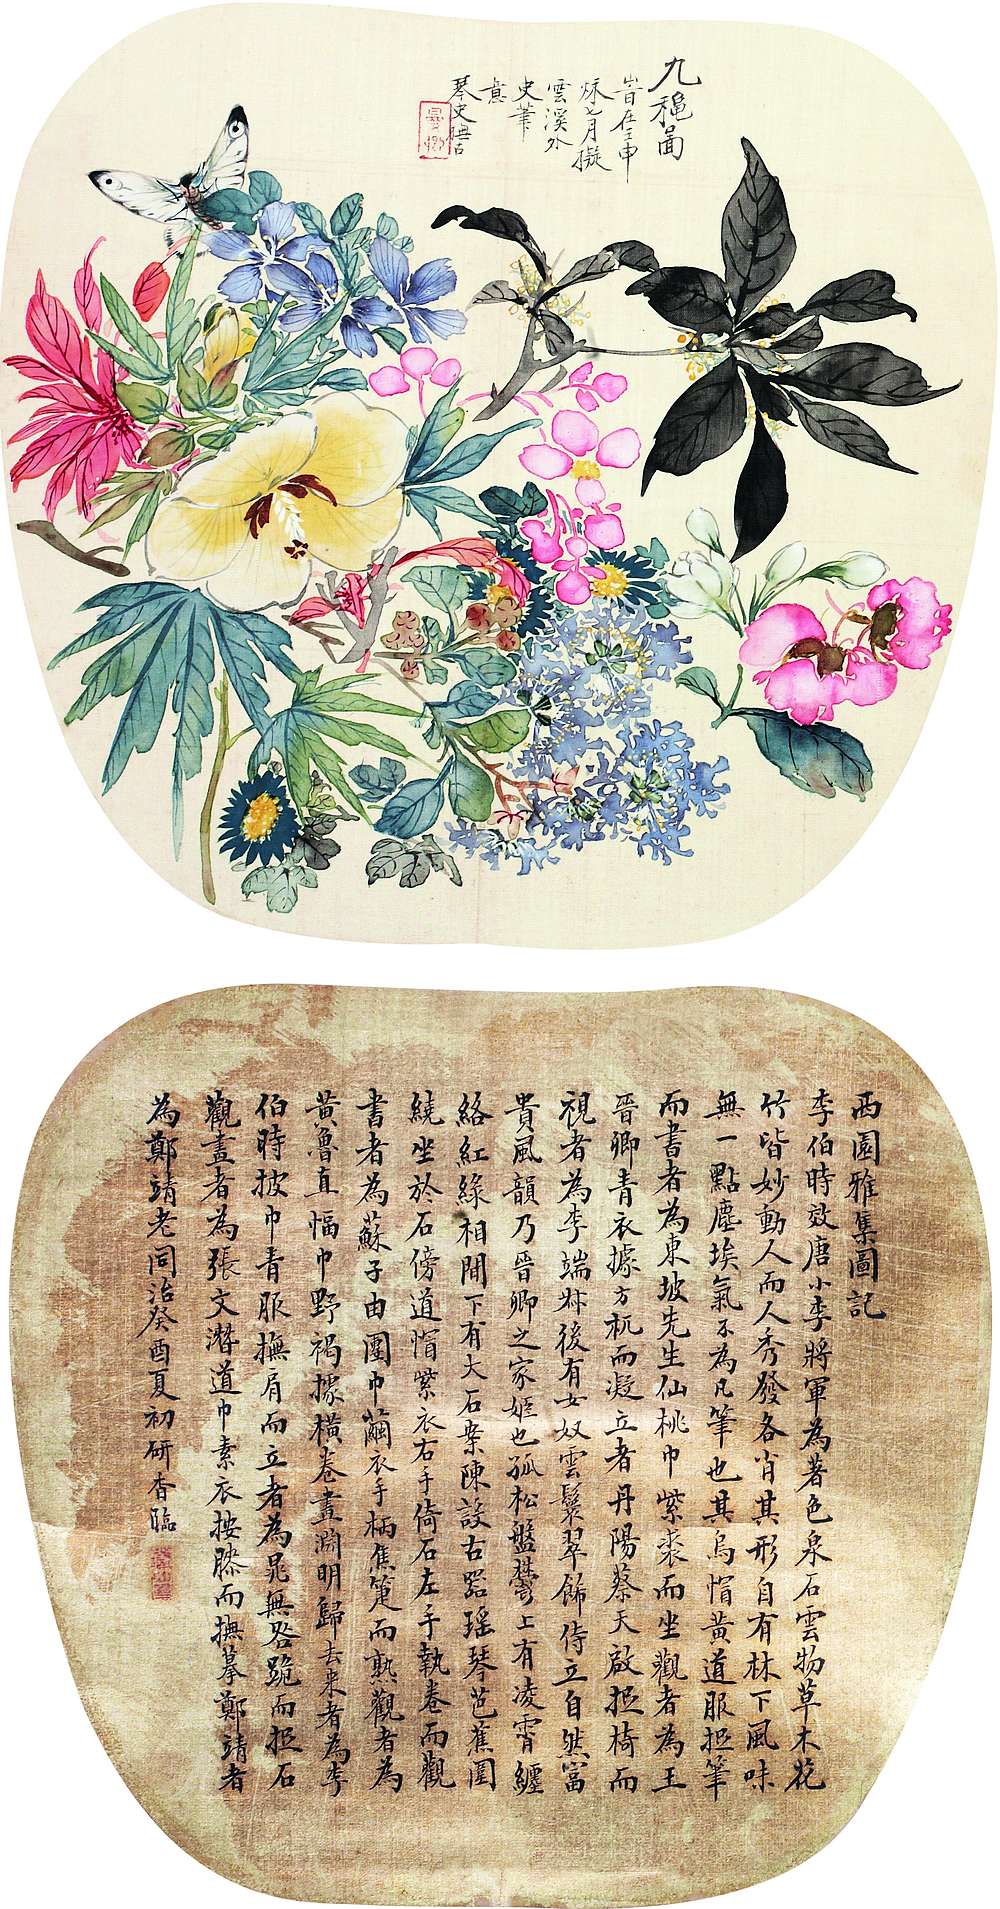 九穐圖
峕在壬申
秌七月擬
雲溪外
史筆
意
琴史
西園雅集圖記
李伯時效唐小李將軍為著色泉石雲物草木花
竹皆妙動人而人秀發各肖其形自有林下風味
無一點塵埃氣不為凡筆也其烏帽黃道服捉筆
而書者為東坡先生仙桃巾紫裘而坐觀者為王
晉卿青衣據方杌而凝立者丹陽蔡天啟捉椅而
視者為李端叔後有女奴雲鬟翠飾侍立自然富
貴風韻乃晉卿之家姬也孤松盤鬱上有凌霄纏
絡紅綠相間下有大石案陳設古器瑤琴芭蕉圍
繞坐於石傍道帽紫衣右手倚石左手執卷而觀
書者為蘇子由團巾繭衣手柄蕉箑而熟觀者為
黃魯直幅巾野褐據橫卷畫淵明歸去来者為李
伯時披巾青服撫肩而立者為晁無咎跪而捉石
觀畫者為張文潛道巾素衣按膝而撫摹鄭靖者
為鄭靖老同治癸酉夏初研香臨